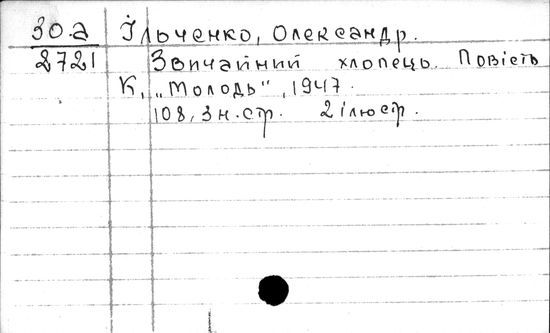 30.а Їльченко, Олександр.
2721 Звичайний хлопець. Повість
К., „Молодь", 1947.
108, 3 н. стр. 2 ілюстр.